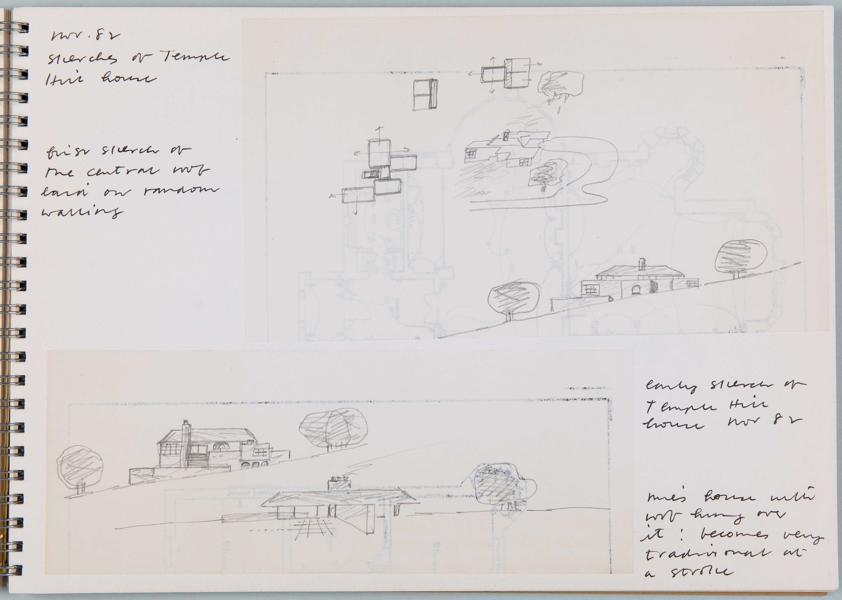 Nov. 82
sketches of Temple
Hill house
first sketch of
the central roof
laid on random
walling
early sketch of
Temple Hill
house Nov 82
mies house with
roof hung over
it : becomes very
traditional at
a stroke